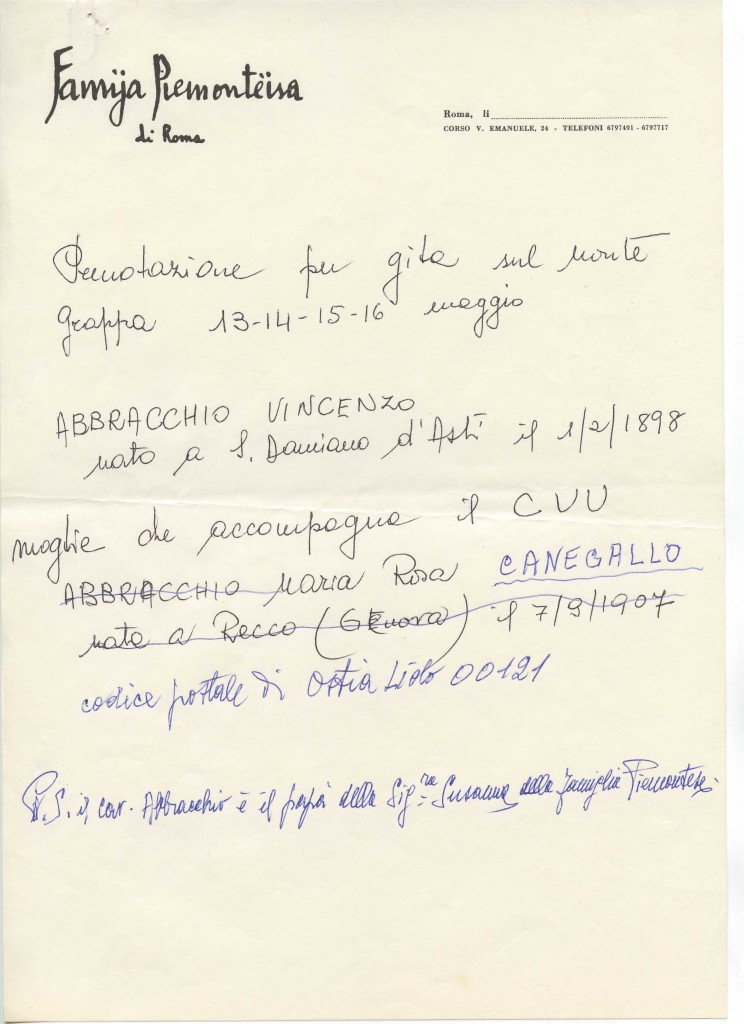 Famija Piemontëisa
di Roma
Roma, li
CORSO V. EMANUELE, 24 - TELEFONI 6797491 - 6797717
Prenotazione per gita sul monte
Grappa 13-14-15-16 maggio
ABBRACCHIO VINCENZO
nato a S. Damiano d'Asti il 1/2/1898
moglie che accompagna il CVU
ABBRACCHIO Maria Rosa CANEGALLO
nata a Recco (GEnova) il 7/9/1907
codice postale di Ostia Lido 00121
P.S. il cav. Abbracchio è il papà della Sig.ra Susanna della famiglia Piemontese.